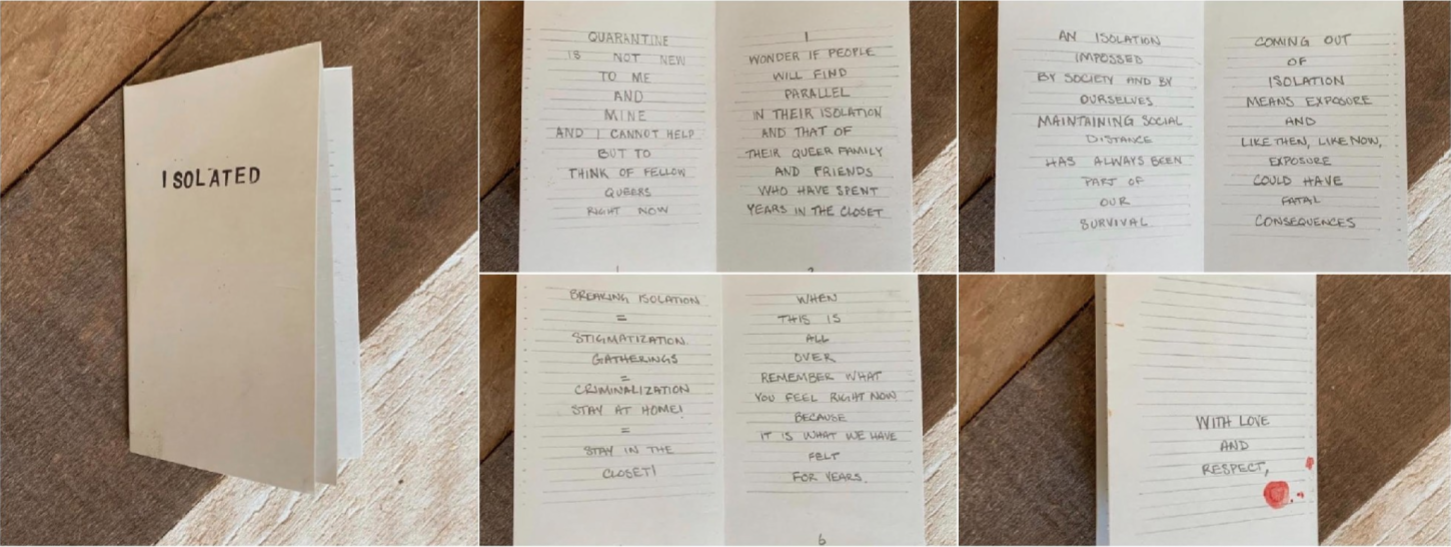 ISOLATED
QUARANTINE
IS NOT NEW
TO ME
AND
MINE
AND I CANNOT HELP
BUT TO
THINK OF FELLOW
QUEERS
RIGHT NOW
I
WONDER IF PEOPLE
WILL FIND
PARALLEL
IN THEIR ISOLATION
AND THAT OF
THEIR QUEER FAMILY
AND FRIENDS
WHO HAVE SPENT
YEARS IN THE CLOSET
AN ISOLATION
IMPOSSED
BY SOCIETY AND BY
OURSELVES
MAINTAINING SOCIAL
DISTANCE
HAS ALWAYS BEEN
PART OF
OUR
SURVIVAL
COMING OUT
OF
ISOLATION
MEANS EXPOSURE
AND
LIKE THEN, LIKE NOW,
EXPOSURE
COULD HAVE
FATAL
CONSEQUENCES
BREAKING ISOLATION
=
STIGMATIZATION
GATHERINGS
=
CRIMINALIZATION
STAY AT HOME!
=
STAY IN THE
CLOSET!
WHEN
THIS IS
ALL
OVER
REMEMBER WHAT
YOU FEEL RIGHT NOW
BECAUSE
IT IS WHAT WE HAVE
FELT
FOR YEARS.
6
WITH LOVE
AND
RESPECT,